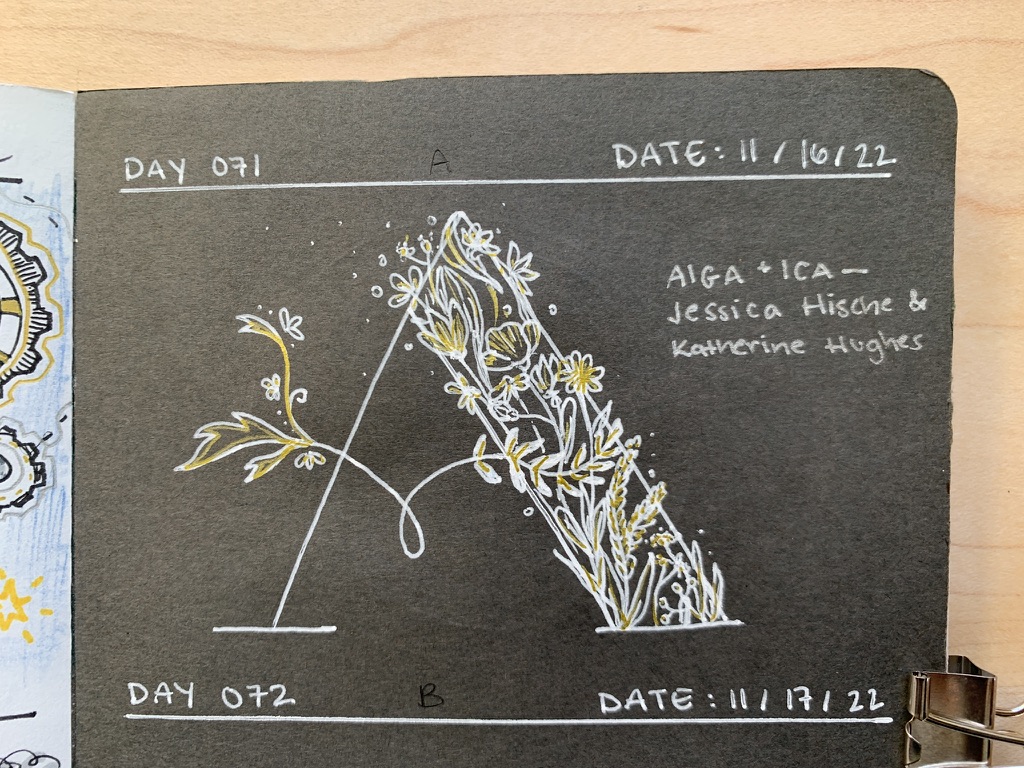 DAY 071 A DATE: 11/16/22
AIGA + ICA —
Jessica Hische &
Katherine Hughes
A
DAY 072 B DATE: 11/17/22